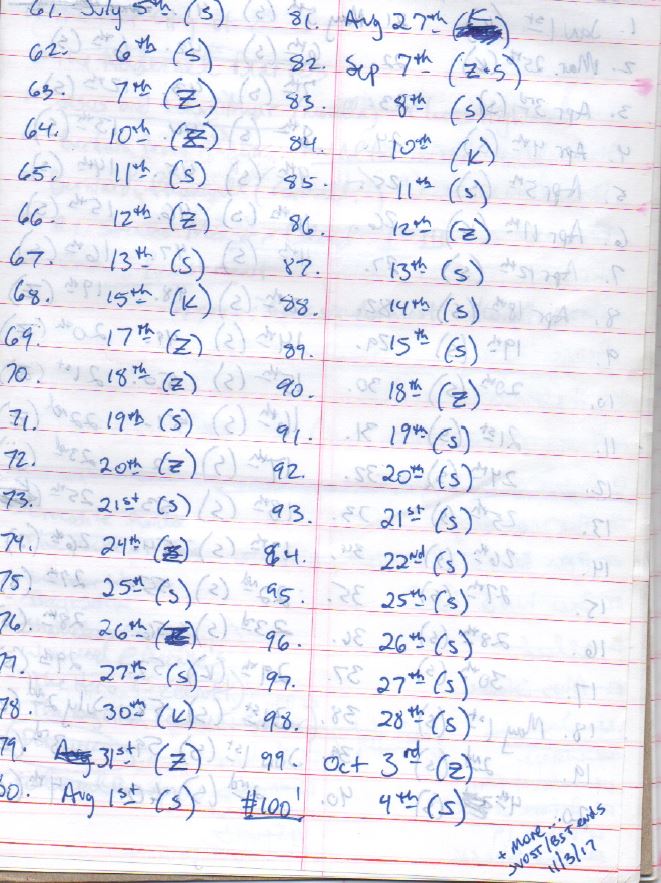 61. July 5th (S)
62. 6th (S)
63. 7th (Z)
64. 10th (Z)
65. 11th (S)
66. 12th (Z)
67. 13th (S)
68. 15th (K)
69. 17th (Z)
70. 18th (Z)
71. 19th (S)
72. 20th (Z)
73. 21st (S)
74. 24th (S)
75. 25th (S)
76. 26th (Z)
77. 27th (S)
78. 30th (K)
79. Aug 31st (Z)
80. Aug 1st (S)
81. Aug 27th (K)
82. Sep 7th (Z+S)
83. 8th (S)
84. 10th (K)
85. 11th (S)
86. 12th (Z)
87. 13th (S)
88. 14th (S)
89. 15th (S)
90. 18th (Z)
91. 19th (S)
92. 20th (S)
93. 21st (S)
84. 22nd (S)
95. 25th (S)
96. 26th (S)
97. 27th (S)
98. 28th (S)
99. Oct 3rd (Z)
#100! 4th (S)
+ more...
VOST/BST ends
11/3/17